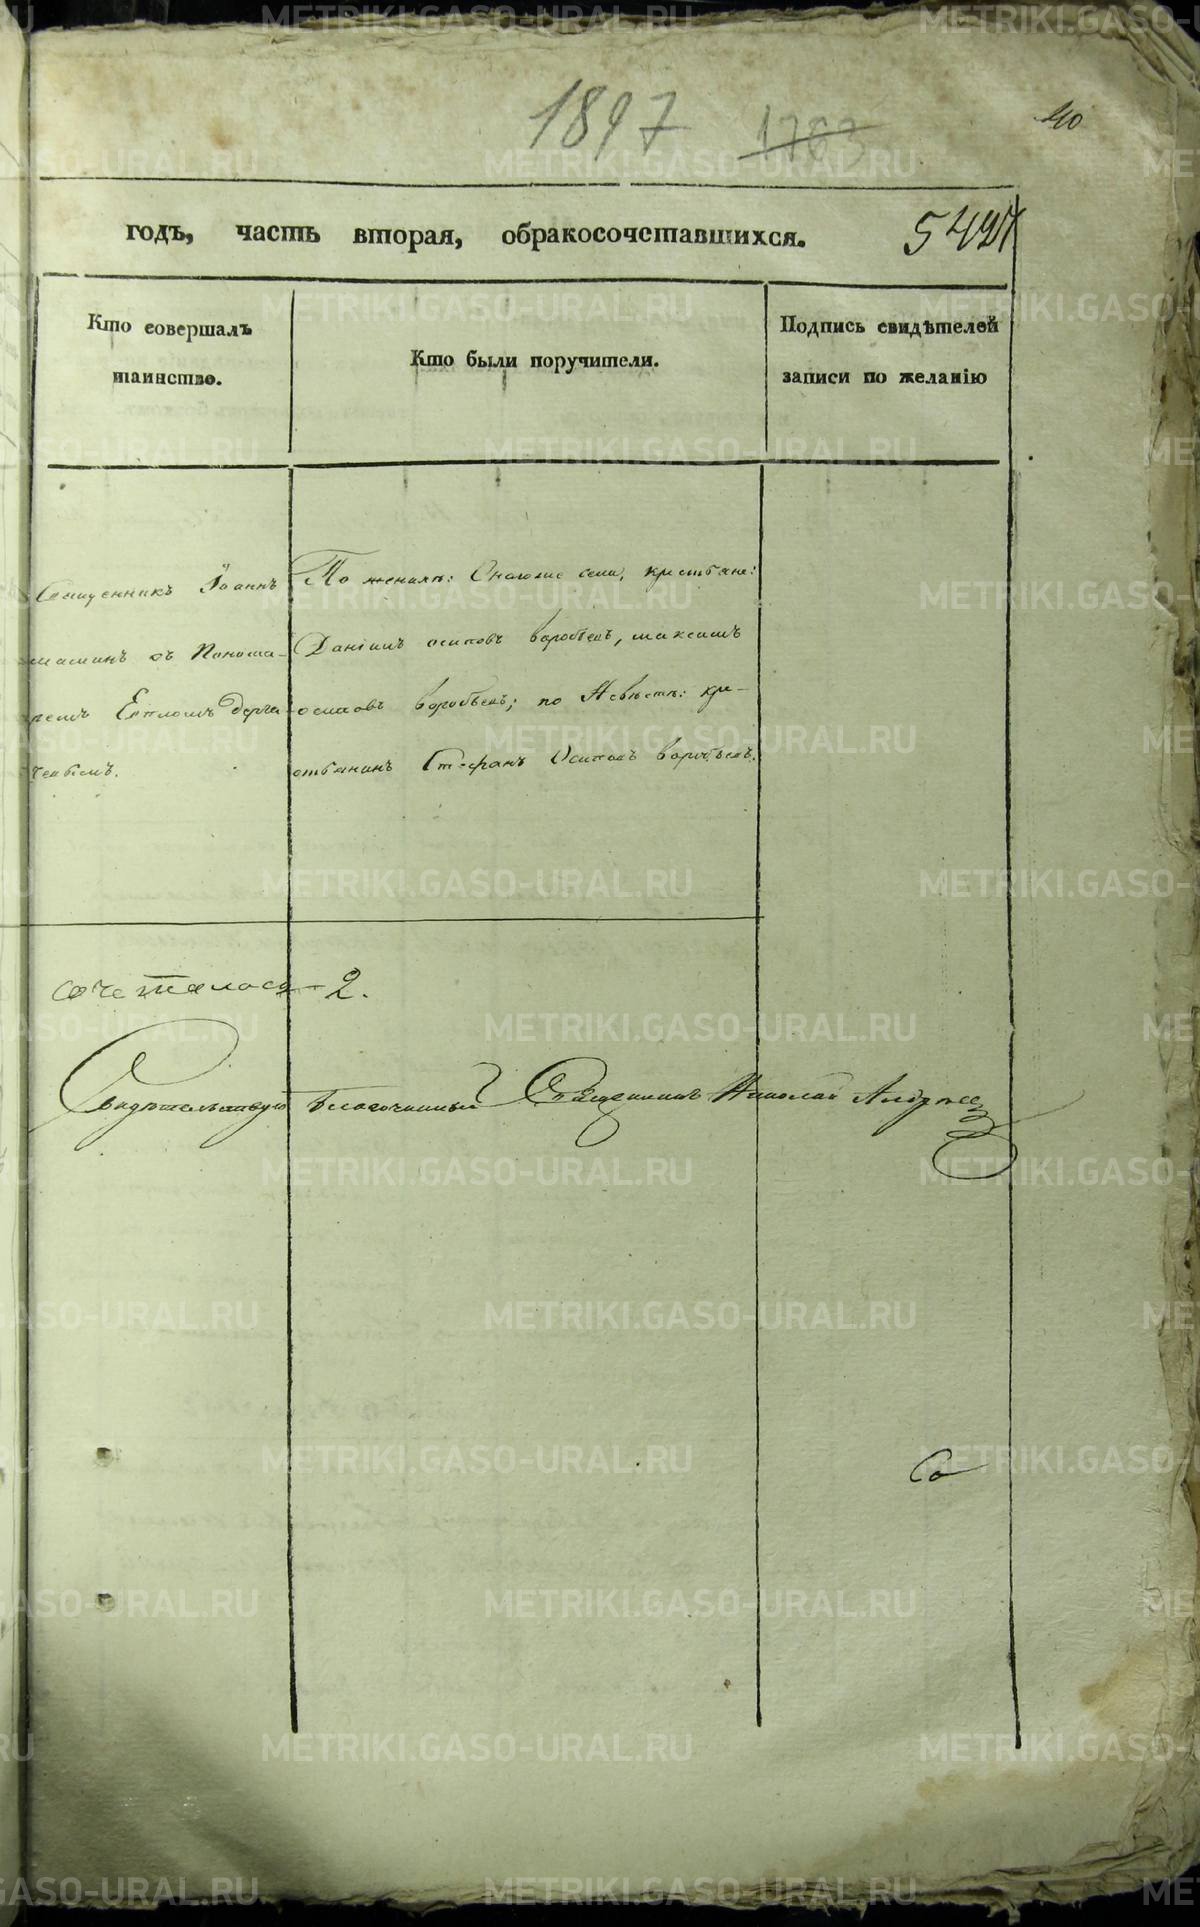 1897 1763
40
годъ, часть вторая, обракосочетавшихся.
Кто совершалъ
таинство.
Кто были поручители.
Подпись свидѣтелей
записи по желанію
Священникъ Іоаннъ
съ Понома-
ремъ
По женихѣ: села, крестьяне:
Даніилъ осиповъ воробьевъ, максимъ
осиповъ воробьевъ; по Невѣстѣ: кре-
стьянинъ Стефанъ Осиповъ воробьевъ.
сочеталося - 2.
Свидѣтельствую благочинный Священникъ Николай
Со
METRIKI.GASO-URAL.RU